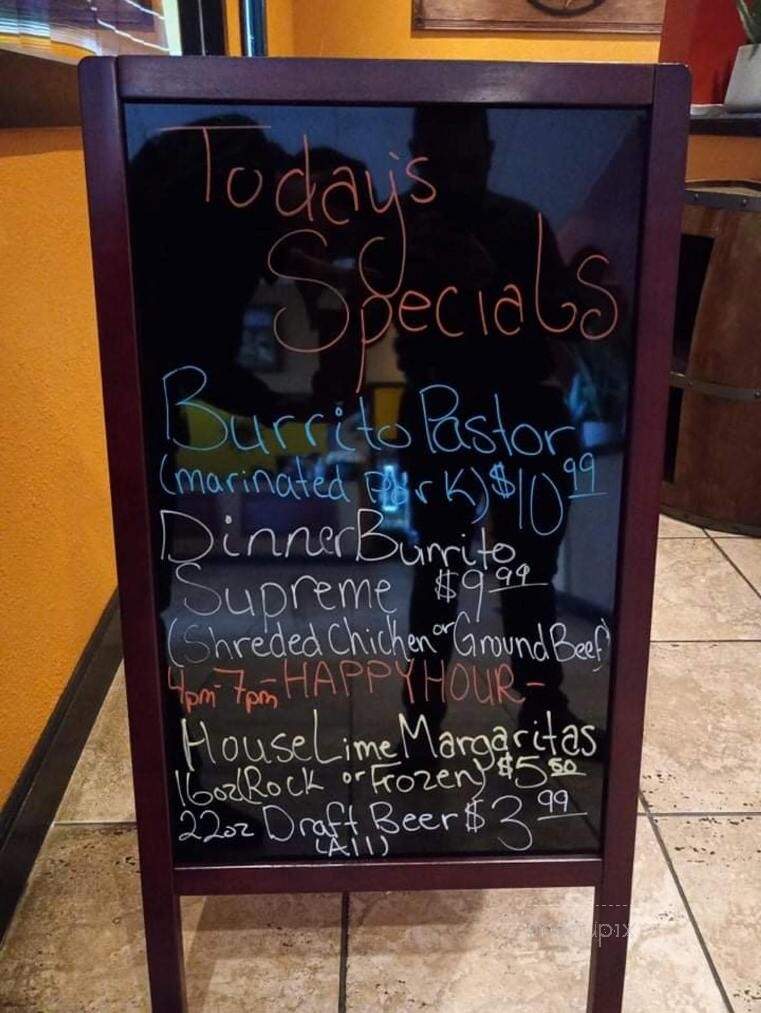 Today's
Specials
Burrito Pastor
(marinated Pork) $10 99
Dinner Burrito
Supreme $9 99
(Shreded Chicken or Ground Beef)
4pm-7pm-HAPPY HOUR-
House Lime Margaritas
16oz (Rock or Frozen) $5 50
22oz Draft Beer $3 99
(All)